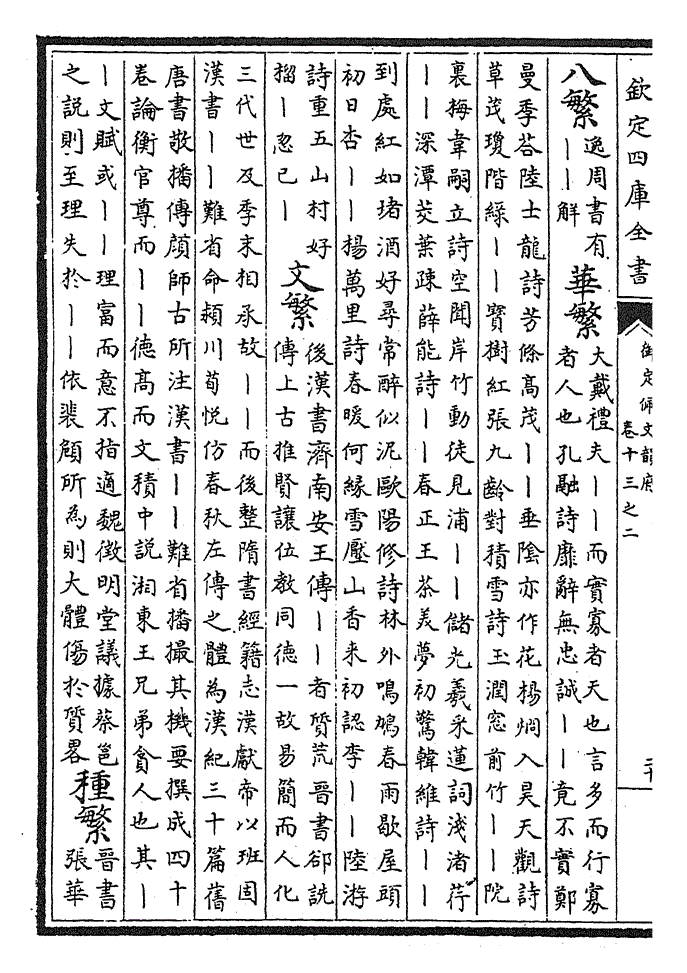 欽定四庫全書
御定佩文韻府
卷十三之二
二十
八繁
逸周書有
丨丨解
華繁
大戴禮夫丨丨而實寡者天也言多而行寡
者人也孔融詩靡辭無忠誠丨丨竟不實鄭
曼季荅陸士龍詩芳條髙茂丨丨垂隂亦作花楊烱入昊天觀詩
草茂瓊階綠丨丨寳樹紅張九齡對積雪詩玉潤窓前竹丨丨院
裏梅韋嗣立詩空聞岸竹動徒見浦丨丨儲光羲采蓮詞淺渚荇
丨丨深潭茭葉疎薛能詩丨丨春正王茶美夢初驚韓維詩丨丨
到處紅如堵酒好尋常醉似泥歐陽修詩林外鳴鳩春雨歇屋頭
初日杏丨丨楊萬里詩春暖何緣雪壓山香来初認李丨丨陸游
詩重五山村好
榴丨忽已丨
文繁
後漢書濟南安王傳丨丨者質荒晉書郤詵
傳上古推賢讓位教同德一故易簡而人化
三代世及季末相承故丨丨而後整隋書經籍志漢獻帝以班固
漢書丨丨難省命潁川荀悦仿春秋左傳之體為漢紀三十篇舊
唐書敬播傳顔師古所注漢書丨丨難省播撮其機要撰成四十
卷論衡官尊而丨丨德髙而文積中説湘東王兄弟貪人也其丨
丨文賦或丨丨理富而意不指適魏徴明堂議據蔡邕
之説則至理失於丨丨依裴頠所為則大體傷於質畧
種繁
晉書
張華